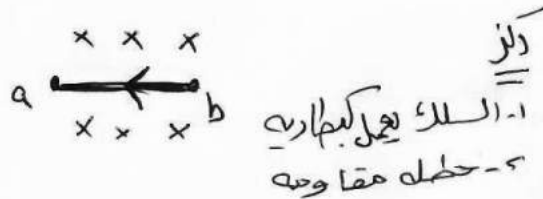 × × ×
a b
× × ×
ركز
١- السلك يعمل كبطارية
٢- حطله مقاومه